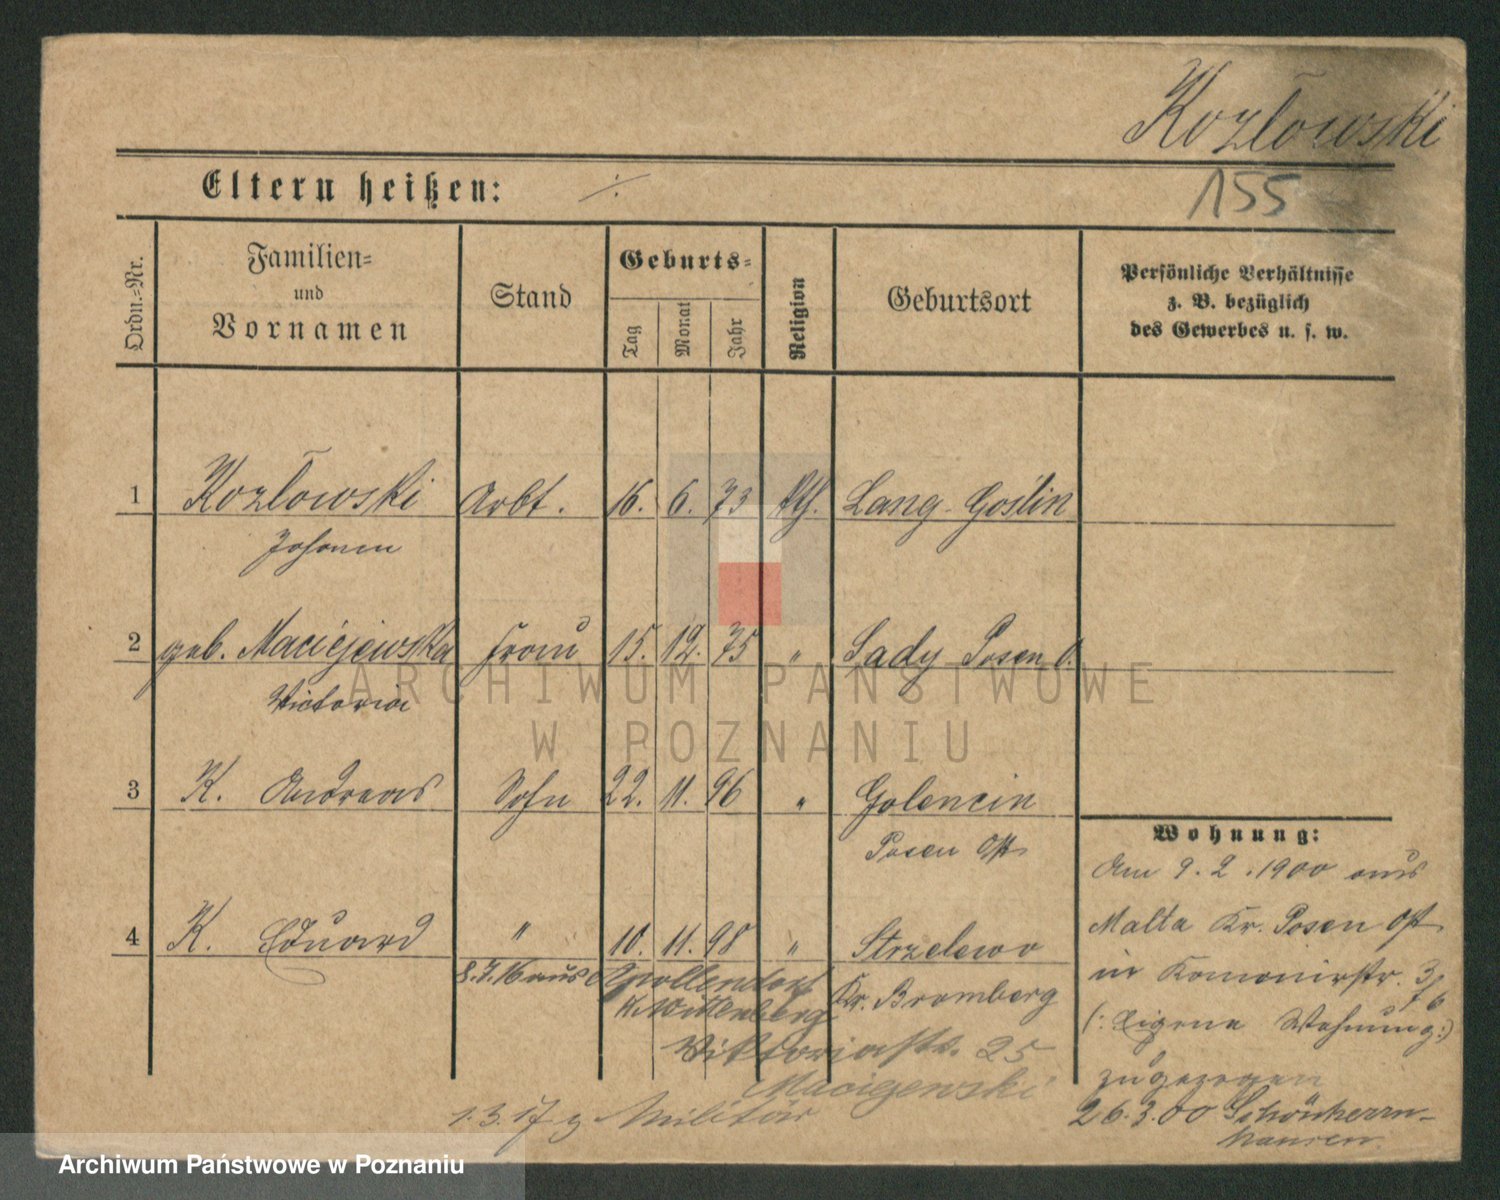 Kozłowski
155
Eltern heißen: ÷
Ordn.-Nr.
Familien-
und
Vornamen
Stand
Geburts-
Tag
Monat
Jahr
Religion
Geburtsort
Persönliche Verhältnisse
z. B. bezüglich
des Gewerbes u. s. w.
1 Kozłowski Arbt. 16. 6. 73 kth. Lang-Goślin
Johann
2 geb. Maciejewska Frau 15. 12. 75 " Sady Posen O.
Victoria
3 K. Andreas Sohn 22. 11. 96 " Golencin
Posen Ost
4 K. Eduard " 10. 11. 98 " Strzelewo
Kr. Bromberg
8.7.16 aus Apollendorf
Kr. Wittenberg
Viktoriastr. 25
Maciejewski
1.3.17 z Militär
Wohnung:
Am 9.2.1900 aus
Malta Kr. Posen Ost
in Kommonirstr. 3/6
(: Eigene Wohnung :)
zugezogen
26.3.00 Schönherrn-
hausen
ARCHIWUM PAŃSTWOWE
W POZNANIU
Archiwum Państwowe w Poznaniu